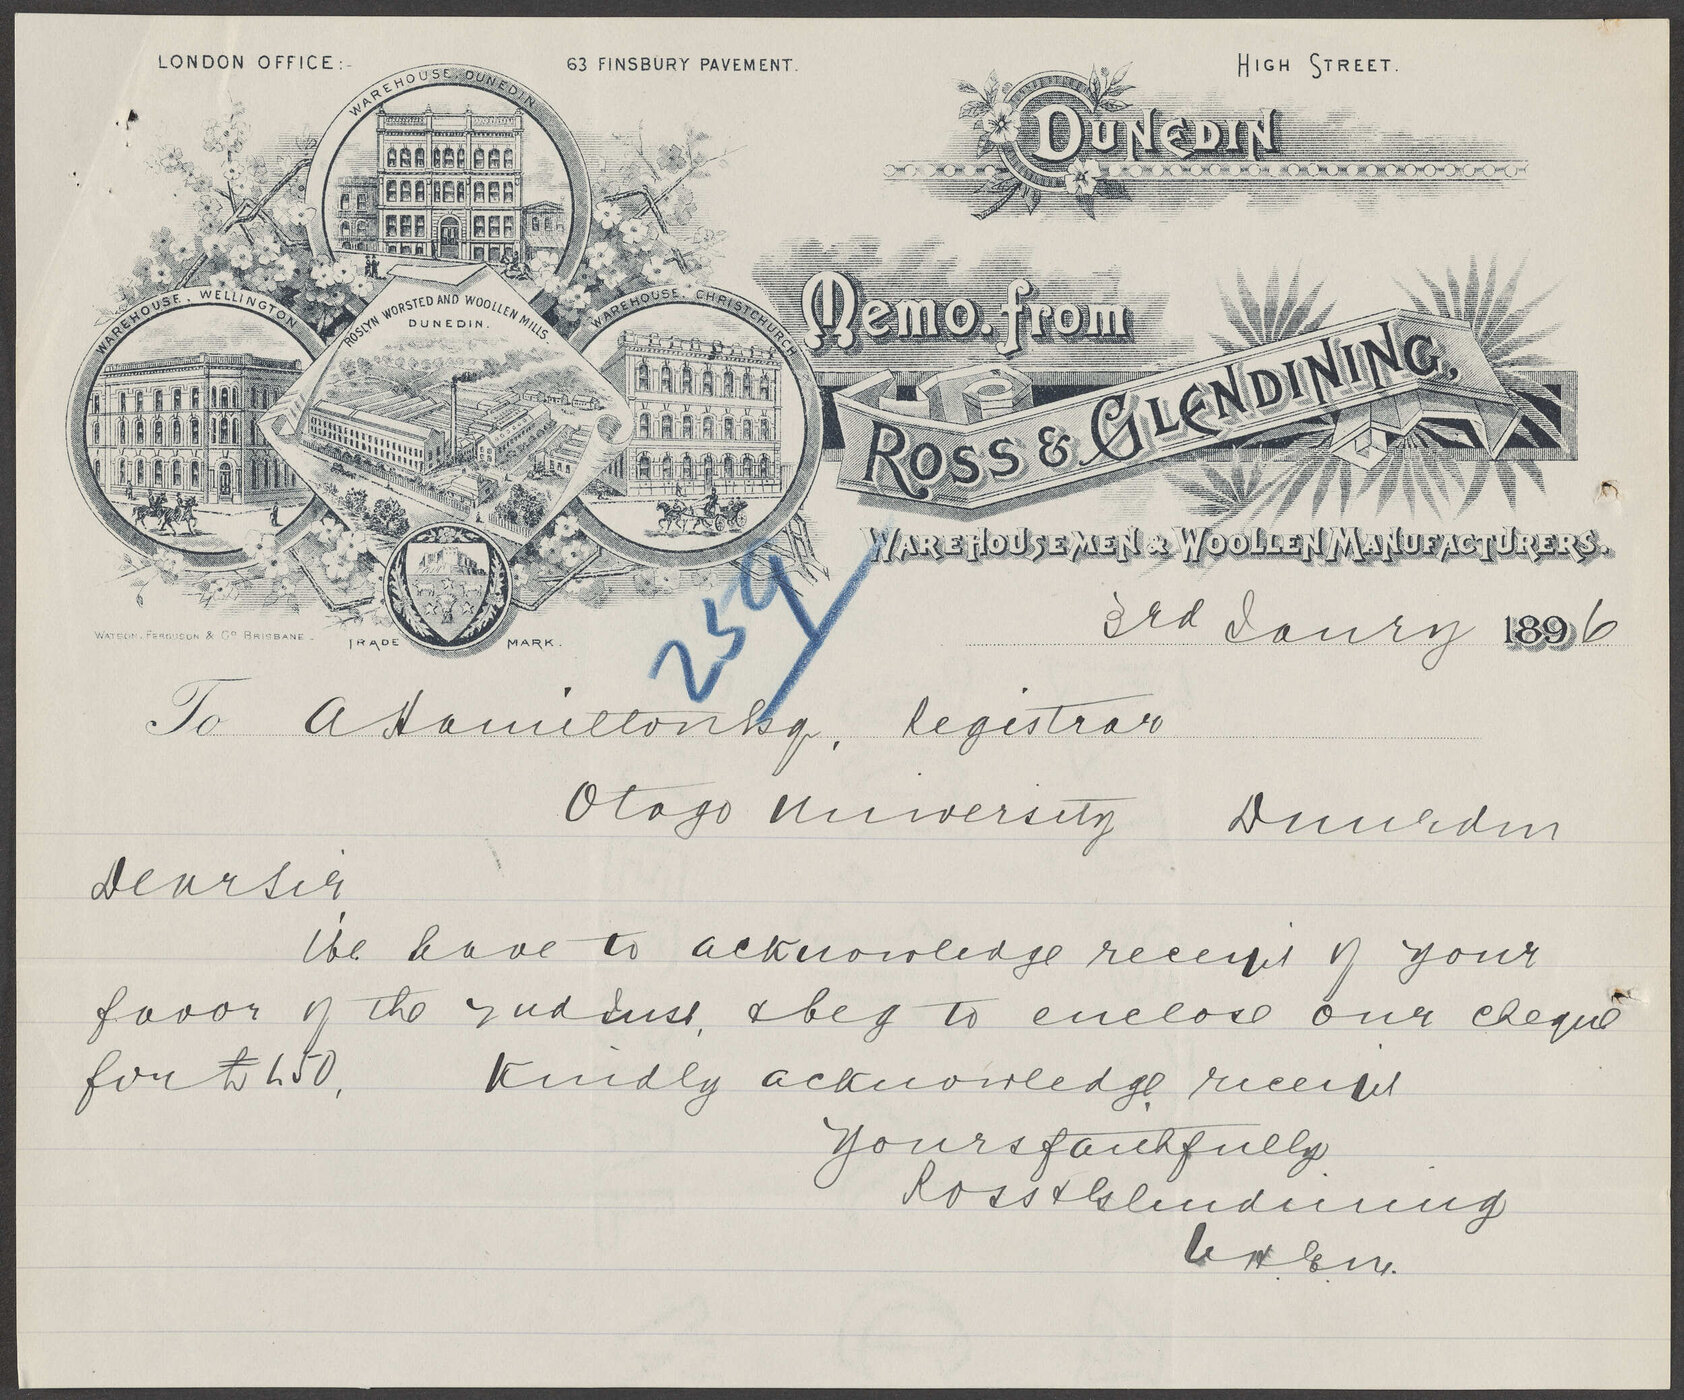 LONDON OFFICE:- 63 FINSBURY PAVEMENT. HIGH STREET.
DUNEDIN
WAREHOUSE. DUNEDIN
WAREHOUSE. WELLINGTON
ROSLYN WORSTED AND WOOLLEN MILLS.
DUNEDIN.
WAREHOUSE. CHRISTCHURCH
Memo. from
ROSS & GLENDINING,
WAREHOUSEMEN & WOOLLEN MANUFACTURERS.
WATSON, FERGUSON & Co BRISBANE.
TRADE MARK.
259
3rd Janry 1896
To A Hamilton Esq, Registrar
Otago University Dunedin
Dear Sir
We have to acknowledge receipt of your
favor of the 2nd Inst, & beg to enclose our cheque
for £50, Kindly acknowledge receipt
Yours faithfully
Ross & Glendining